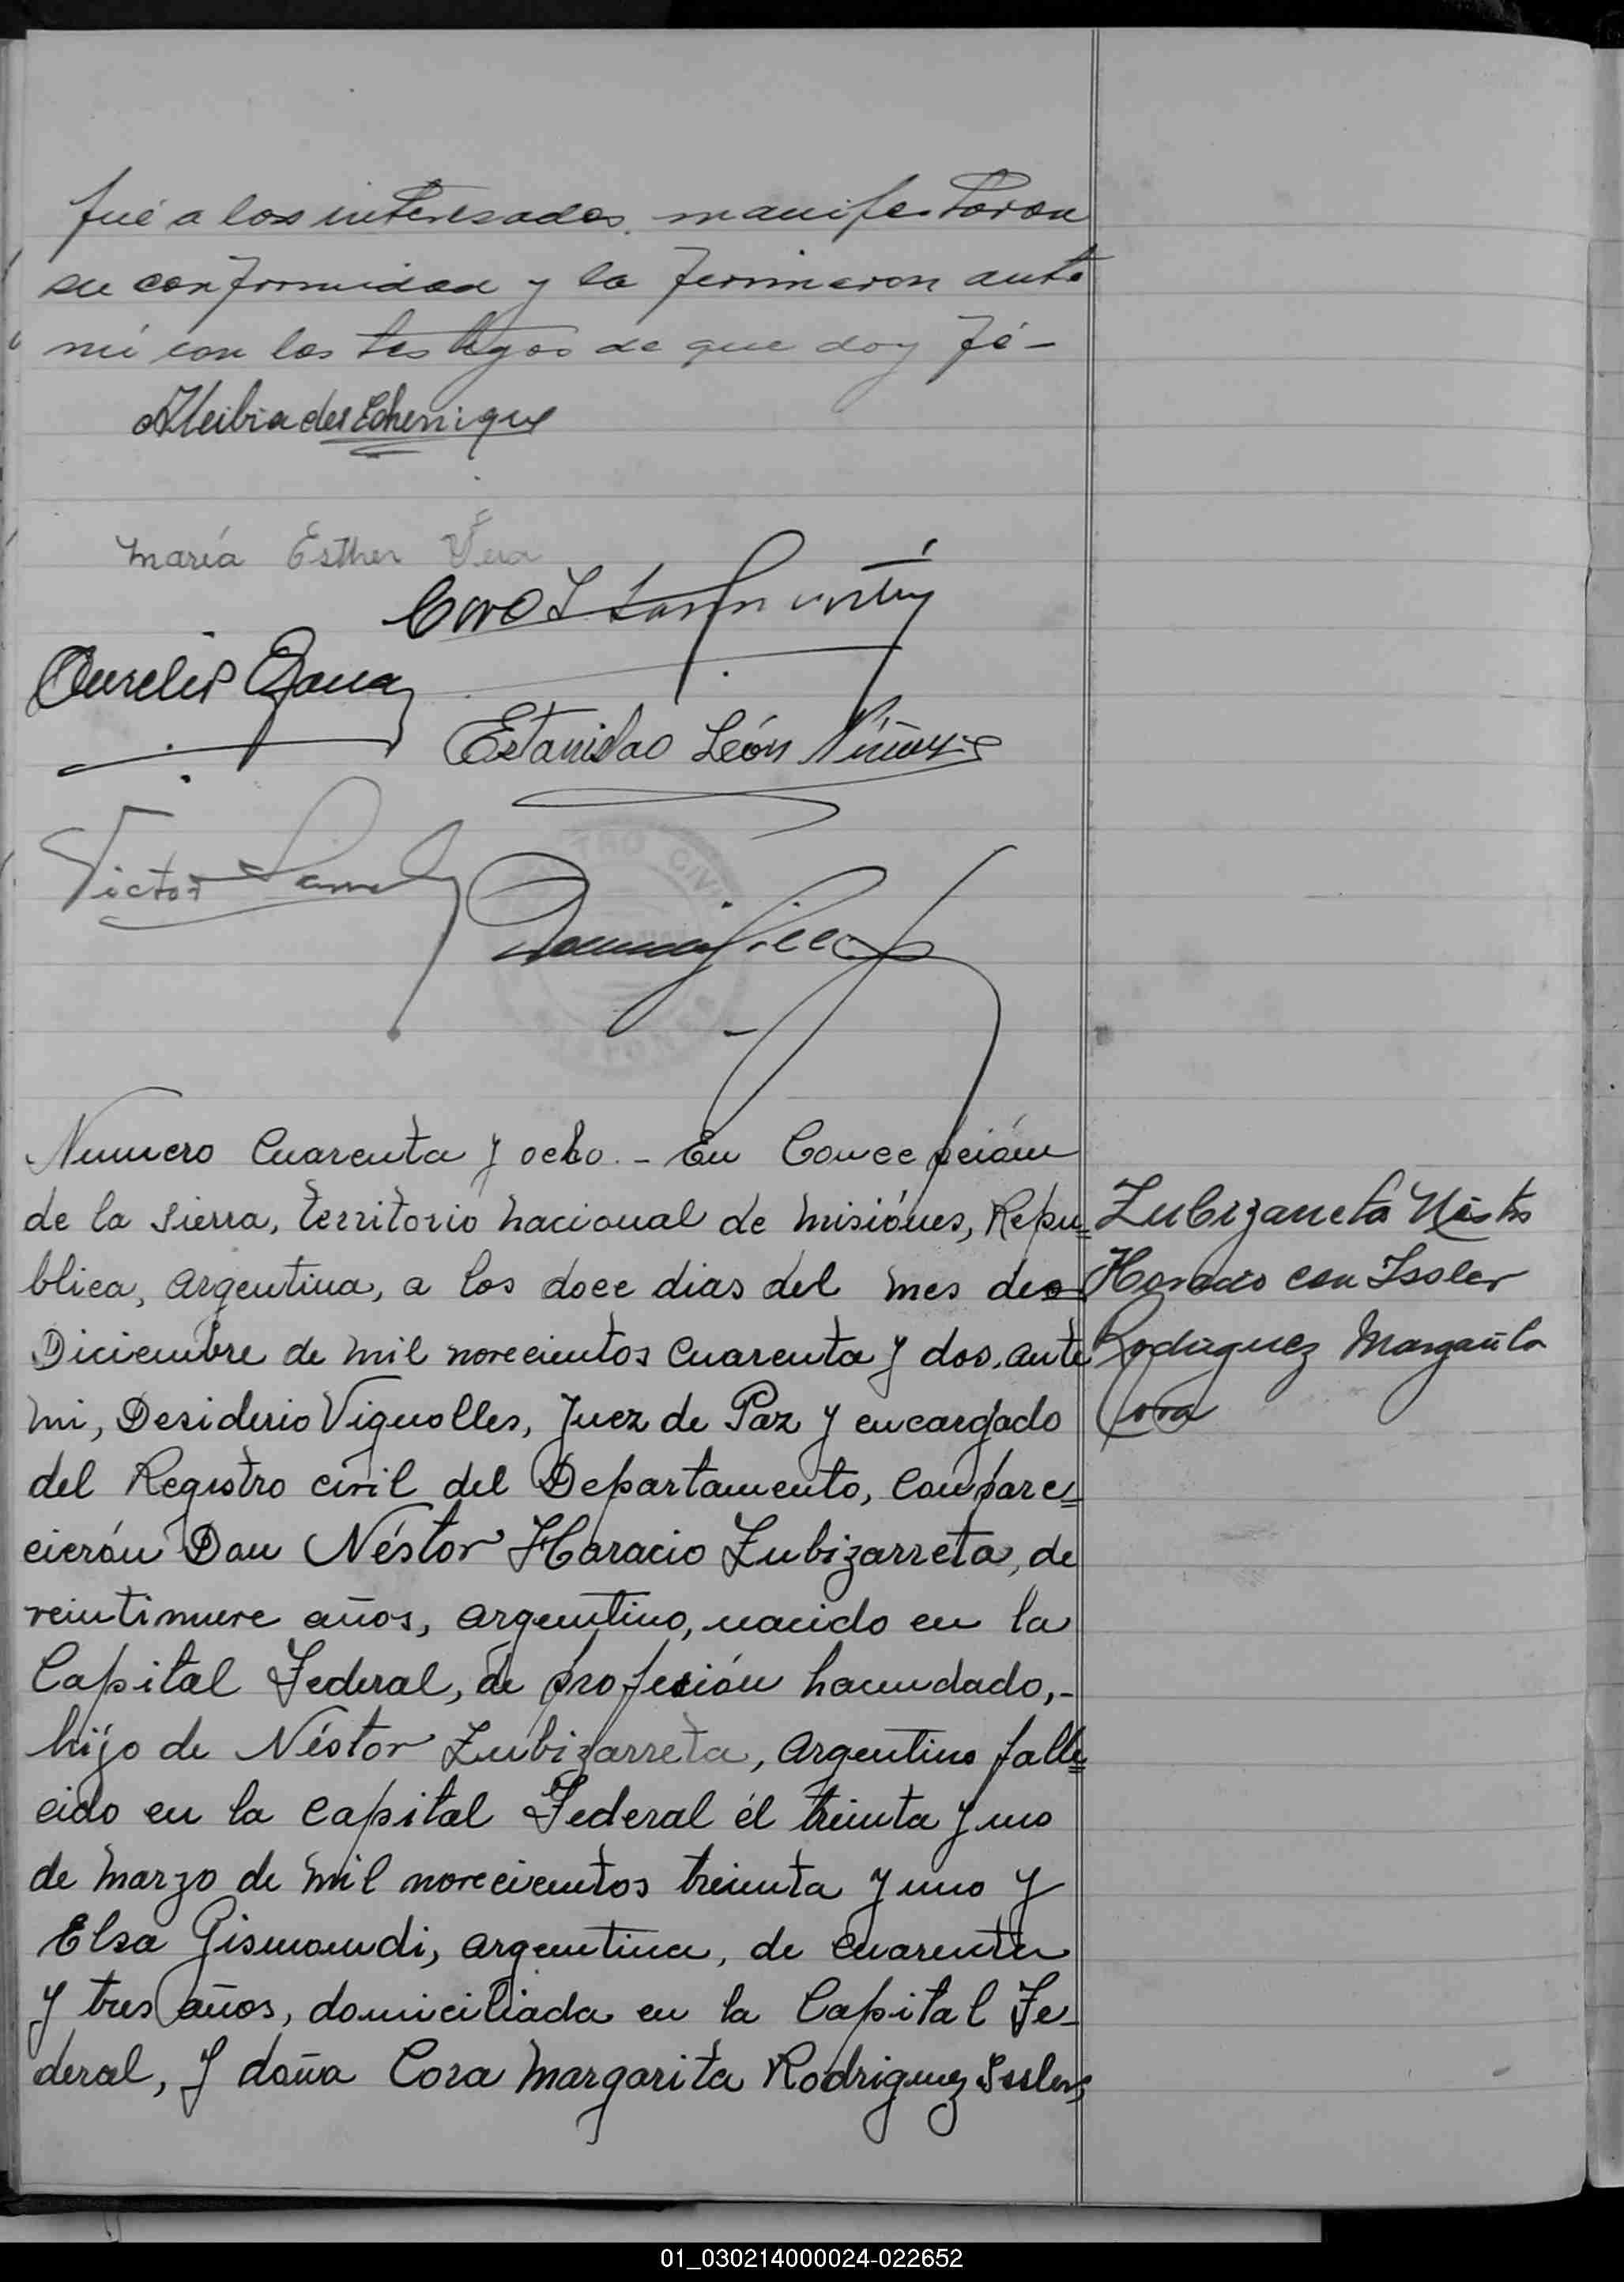 fué a los interesados, manifestaron
su conformidad y la firmaron ante
mi con los testigos de que doy fé-
Alcibiades Echenique
maría Esther Vera
Aurelio
Estanislao León
Victor
REGISTRO CIVIL
MISIONES
Numero Cuarenta y ocho. - En Concepción
de la Sierra, territorio nacional de misiónes, Repu=
blica, argentina, a los doce dias del mes de
Diciembre de mil novecientos cuarenta y dos, ante
mi, Desiderio Vignolles, Juez de Paz y encargado
del Registro civil del Departamento, Compare=
cierón Don Néstor Horacio Zubizarreta, de
veintinueve años, argentino, nacido en la
Capital Federal, de profesión hacendado,-
hijo de Néstor Zubizarreta, argentino falle=
cido en la capital Federal él treinta y uno
de marzo de mil novecientos treinta y uno y
Elsa Gismondi, argentina, de cuarenta
y tres años, domiciliada en la Capital Fe-
deral, y doña Cora Margarita Rodriguez Issler,
Zubizarreta Néstor
Horacio con Issler
Rodriguez Margarita
Cora
01_030214000024-022652